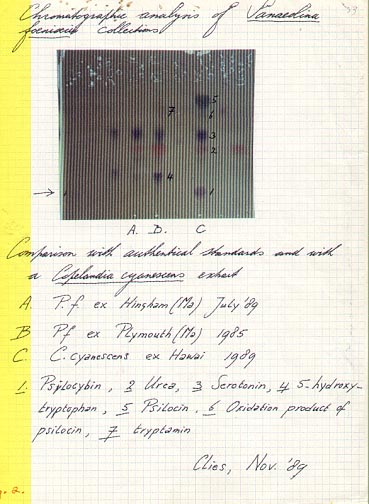 Chromatographic analysis of Panaeolina
foenisecii collections
33
5
6
7
3
2
4
1
A. B. C
Comparison with authentical standards and with
a Copelandia cyanescens extract
A. P.f. ex Hingham (Ma) July '89
B Pf ex Plymouth (Ma) 1985
C. C. cyanescens ex Hawai 1989
1 Psylocybin, 2 Urea, 3 Serotonin, 4 5-hydroxy-
tryptophan, 5 Psilocin, 6 Oxidation product of
psilocin, 7 tryptamin
Clies, Nov. '89
2.